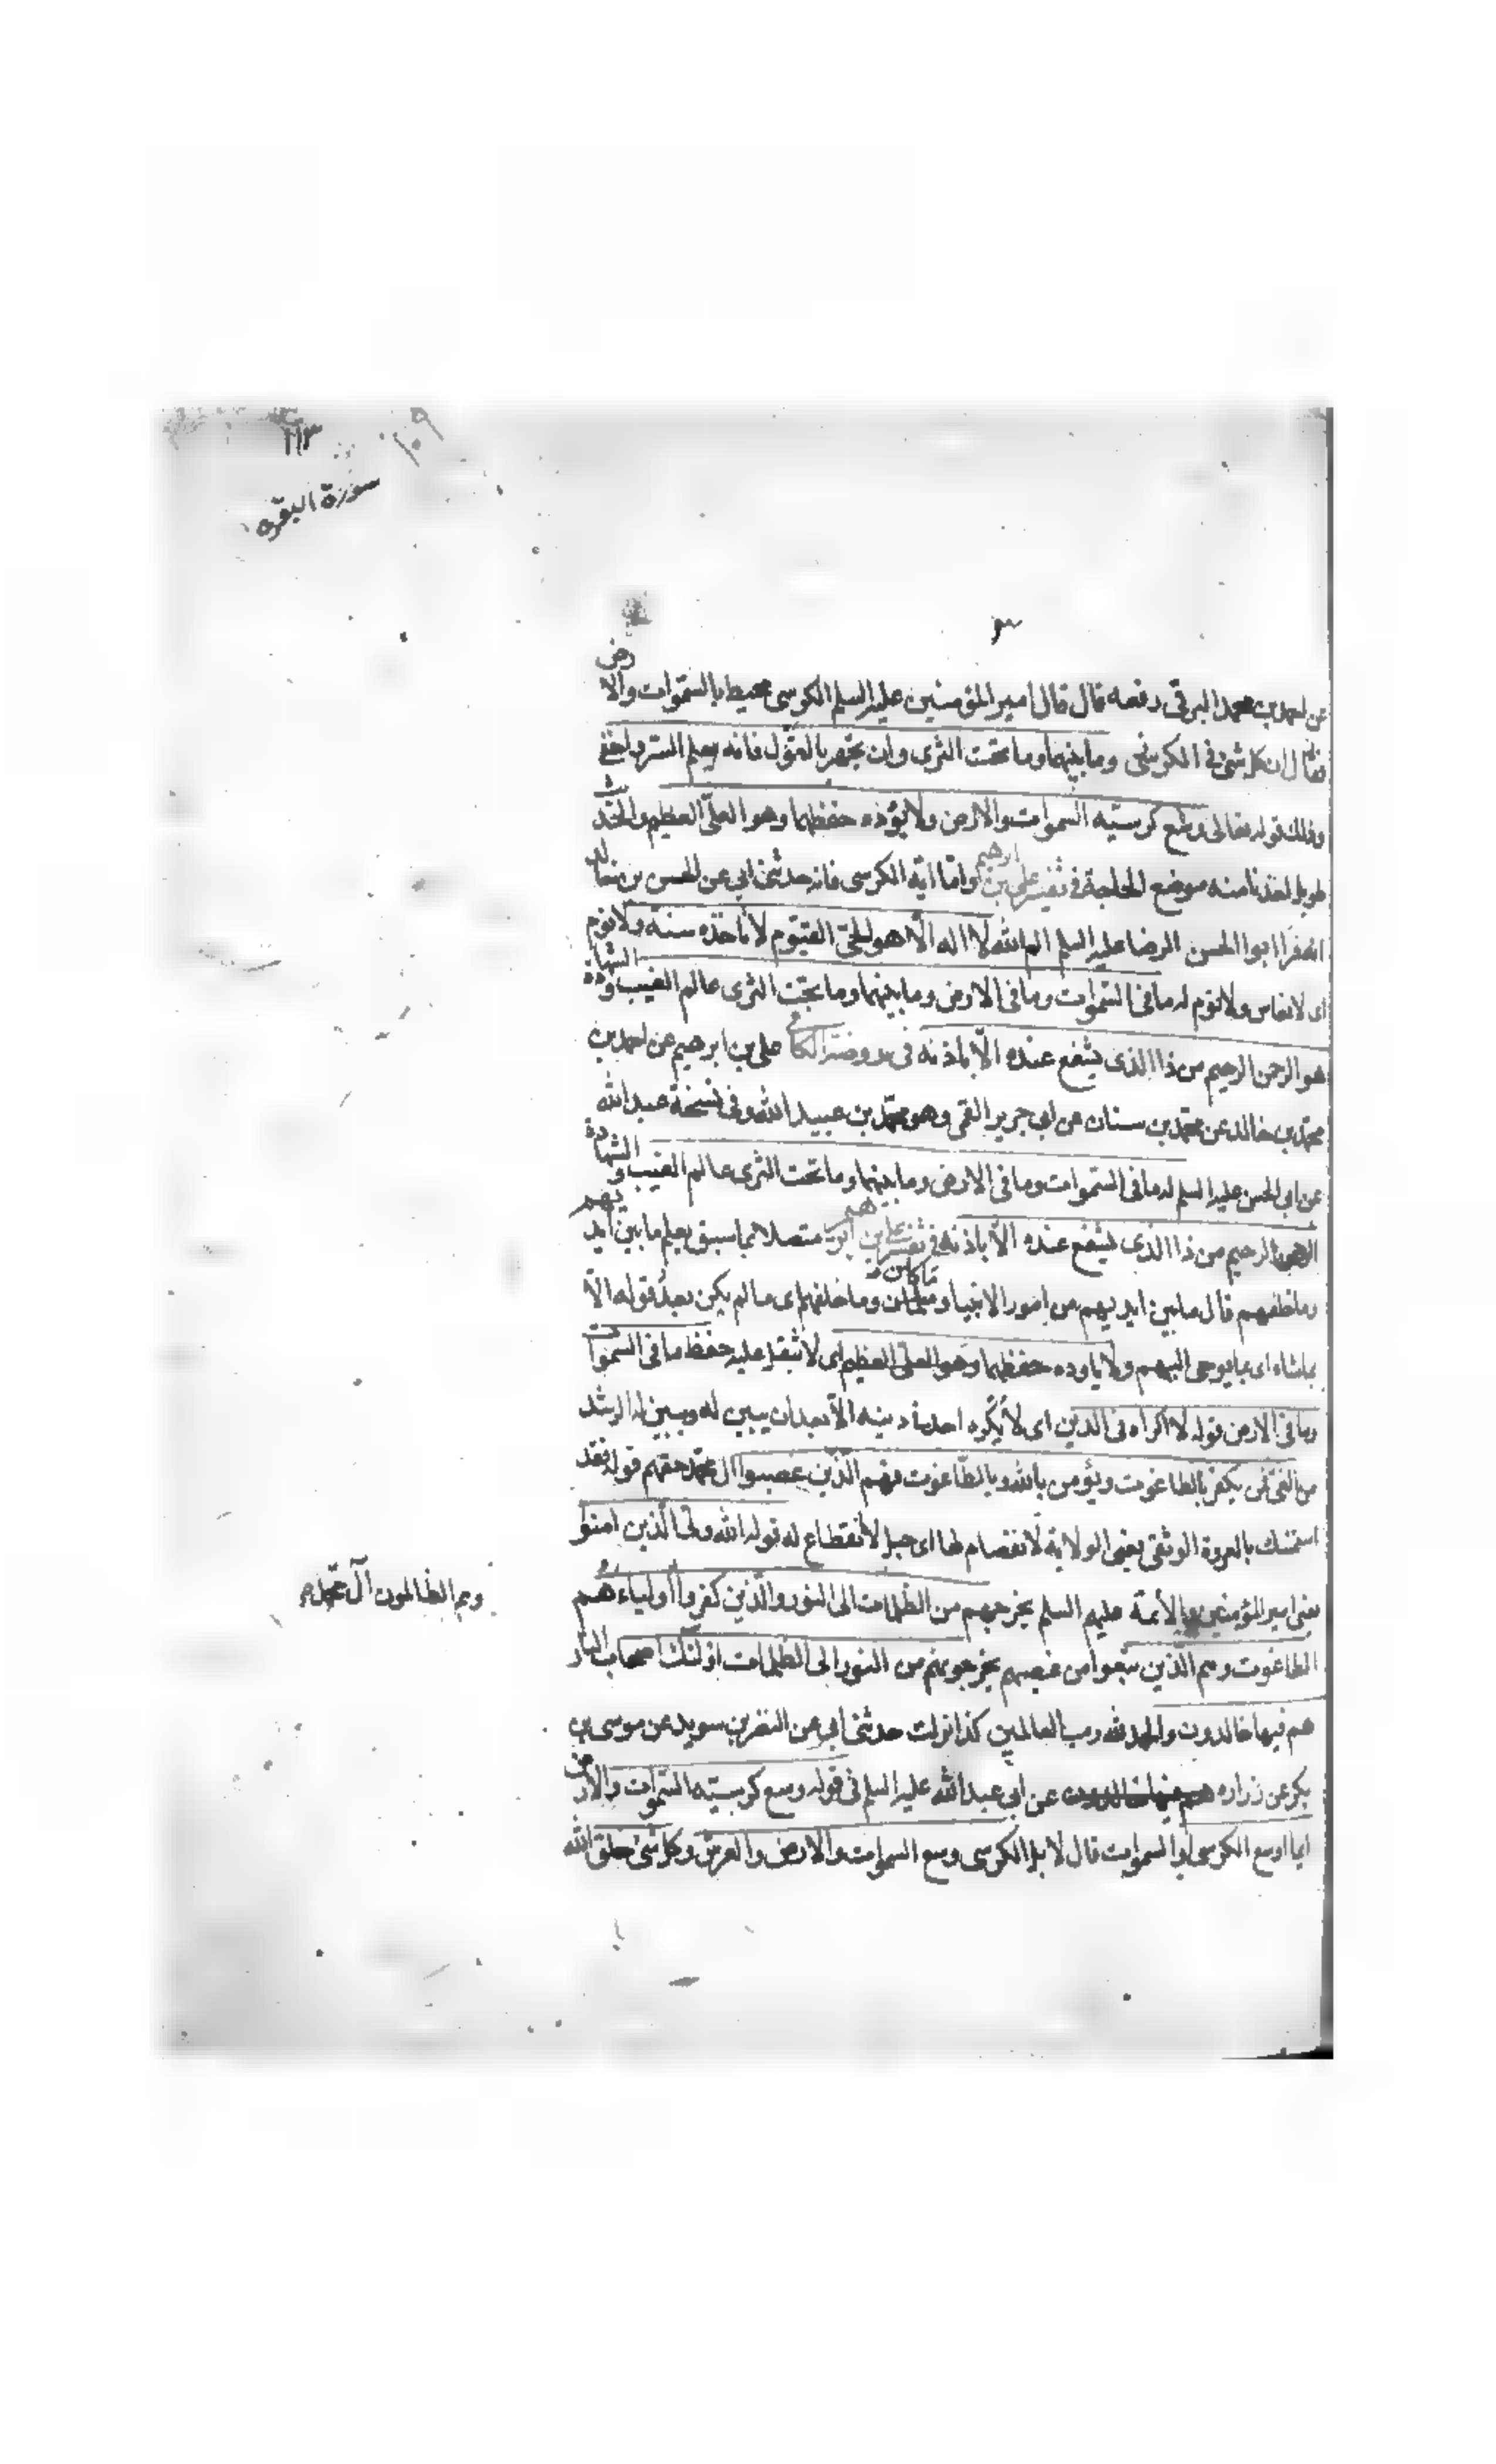 ١١٣
١٠٩
سورة البقرة
عن احمد بن محمد البرقى رفعه قال قال امير المؤمنين عليه السلم الكرسى محيط بالسموات والارض
وما بينهما وما تحت الثرى وان تجهر بالقول فانه يعلم السر واخفى
وذلك قوله تعالى وسع كرسيه السموات والارض ولا يؤده حفظهما وهو العلى العظيم والحديث
طويل اخذنا منه موضع الحاجة فى تفسير على بن ابرهيم واما اية الكرسى فانه حدثنى ابى عن الحسن بن خالد
انه قرا ابوا الحسن الرضا عليه السلم الم الله لا اله الا هو الحى القيوم لا تاخذه سنة ولا نوم
اى لا نعاس ولا نوم له ما فى السموات وما فى الارض وما بينهما وما تحت الثرى عالم الغيب والشهادة
هو الرحمن الرحيم من ذا الذى يشفع عنده الا باذنه فى روضة الكافى على بن ابرهيم عن احمد بن
محمد بن خالد عن محمد بن سنان عن ابى جرير القمى وهو محمد بن عبيد الله وفى نسخة عبد الله
عن ابى الحسن عليه السلم له ما فى السموات وما فى الارض وما بينهما وما تحت الثرى عالم الغيب والشهادة
الرحمن الرحيم من ذا الذى يشفع عنده الا باذنه فى تفسير على بن ابرهيم متصلا بما سبق يعلم ما بين ايديهم
وما خلفهم قال ما بين ايديهم من امور الانبيا وما كان وما خلفهم اى ما لم يكن بعد قوله الا
بما شاء اى بما يوحى اليهم ولا ياوده حفظهما وهو العلى العظيم اى لا يثقل عليه حفظ ما فى السموات
وما فى الارض قوله لا اكراه فى الدين اى لا يكره احد دينه الا بعد ان يبين له ويبين له الرشد
من الغى فمن يكفر بالطاغوت ويؤمن بالله وبالطاغوت فهم الذين غصبوا ال محمد حقهم قوله فقد
استمسك بالعروة الوثقى يعنى الولاية لا نفصام لها اى حبل لا انقطاع له قوله الله ولى الذين امنوا
يعنى امير المؤمنين والأئمة عليهم السلم يخرجهم من الظلمات الى النور والذين كفروا أولياءهم
وهم الظالمون آل محمد
الطاغوت وهم الذين تبعوا من غصبهم يخرجونهم من النور الى الظلمات اولئك اصحاب النار
هم فيها خالدون والحمد لله رب العالمين كذا نزلت حدثنى ابى عن النضر بن سويد عن موسى بن
بكر عن زراره عن ابى عبد الله عليه السلم فى قوله وسع كرسيه السموات والارض
ايما اوسع الكرسى او السموات قال لا بل الكرسى وسع السموات والارض والعرش وكل شىء خلق الله